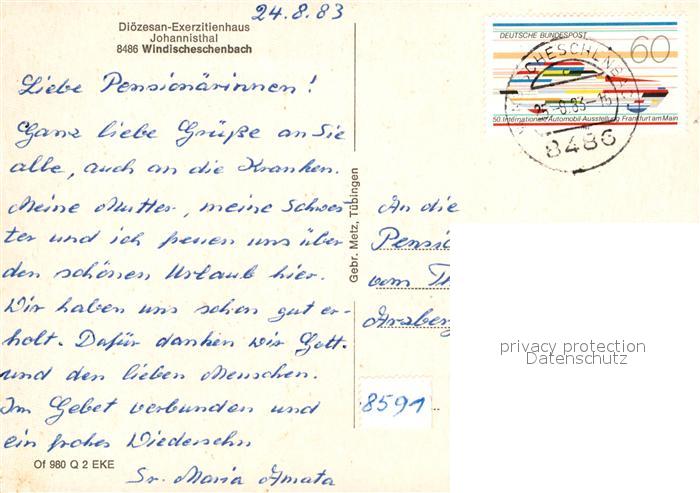 24.8.83
Diözesan-Exerzitienhaus
Johannisthal
8486 Windischeschenbach
Liebe Pensionärinnen!
Ganz liebe Grüße an Sie
alle, auch an die Kranken.
Meine Mutter, meine Schwes
ter und ich freuen uns über
den schönen Urlaub hier.
Wir haben uns schon gut er-
holt. Dafür danken wir Gott
und den lieben Menschen.
Im Gebet verbunden und
ein frohes Wiedersehn
Sr. Maria Amata
Of 980 Q 2 EKE
Gebr. Metz, Tübingen
DEUTSCHE BUNDESPOST
60
50. Internationale Automobil-Ausstellung Frankfurt am Main
8486
An die
Pensio
vom Th
Arzberg
8591
privacy protection
Datenschutz